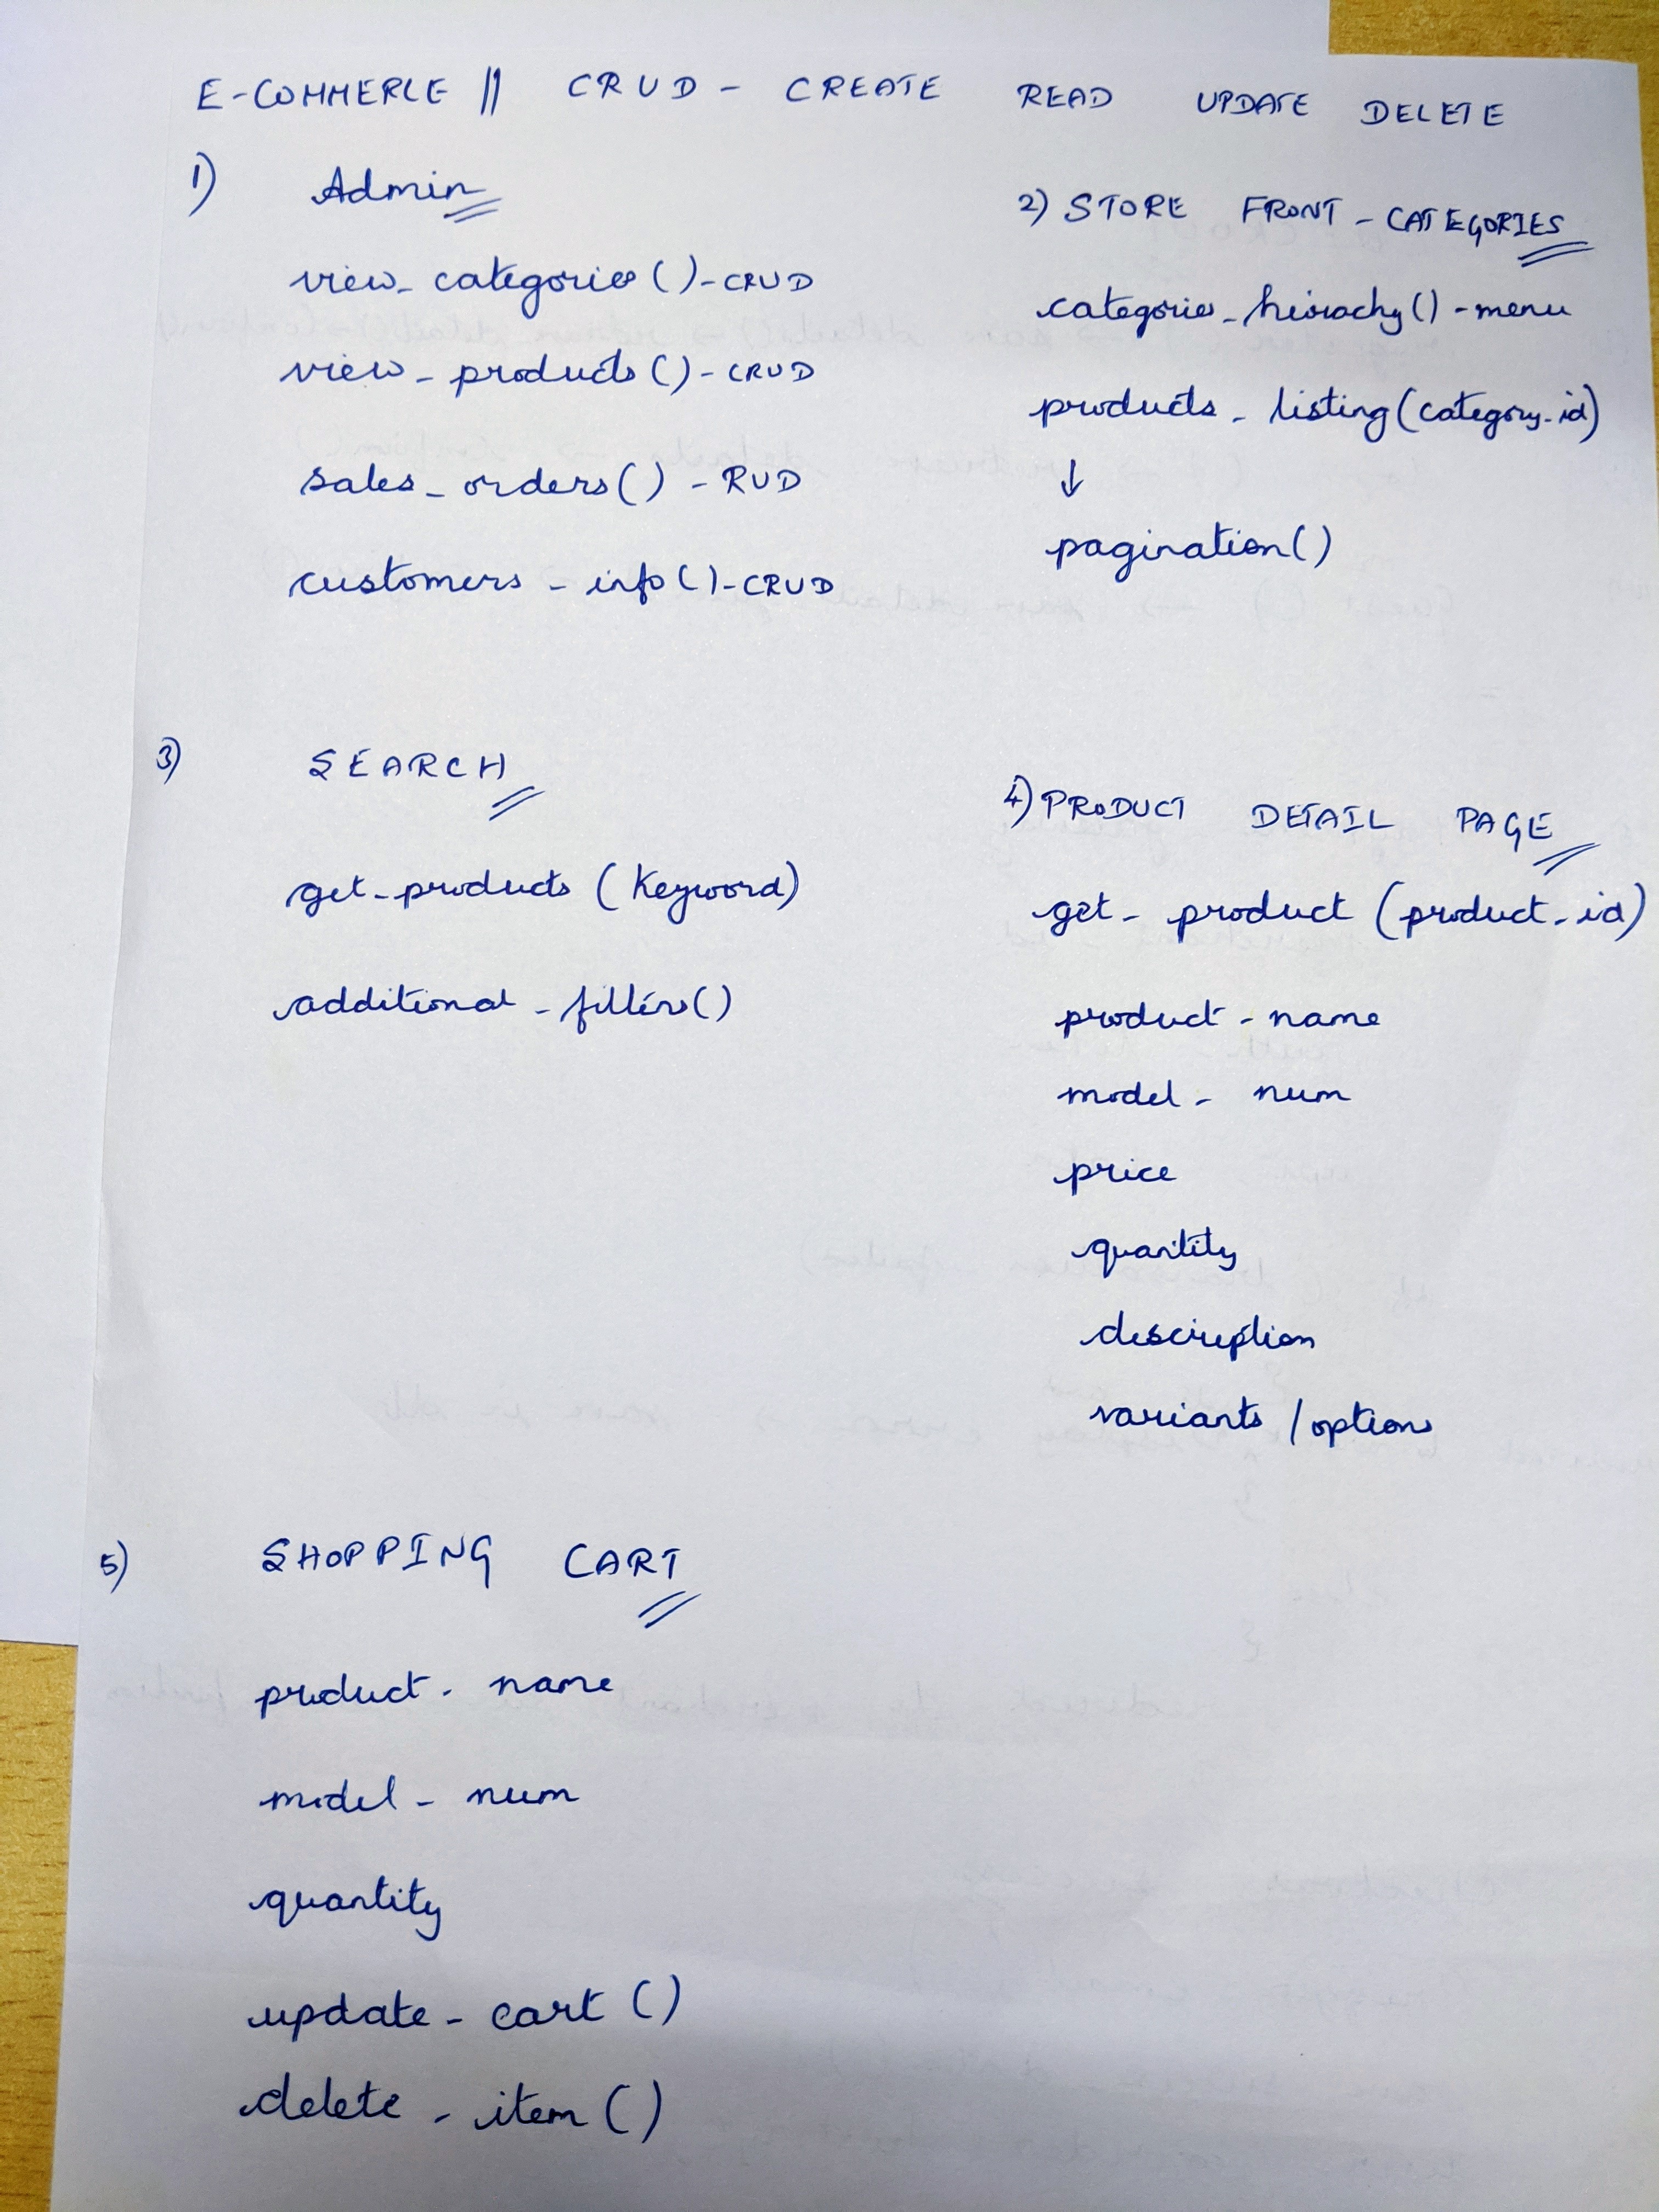 E-COMMERCE || CRUD - CREATE READ UPDATE DELETE
1) Admin
view_categories() - CRUD
view_products() - CRUD
sales_orders() - RUD
customers_info() - CRUD
2) STORE FRONT - CATEGORIES
categories_heirachy() - menu
products_listing(category_id)
↓
pagination()
3) SEARCH
get_products (keyword)
additional_filters()
4) PRODUCT DETAIL PAGE
get_product (product_id)
product_name
model_num
price
quantity
description
variants / options
5) SHOPPING CART
product_name
model_num
quantity
update_cart ()
delete_item ()